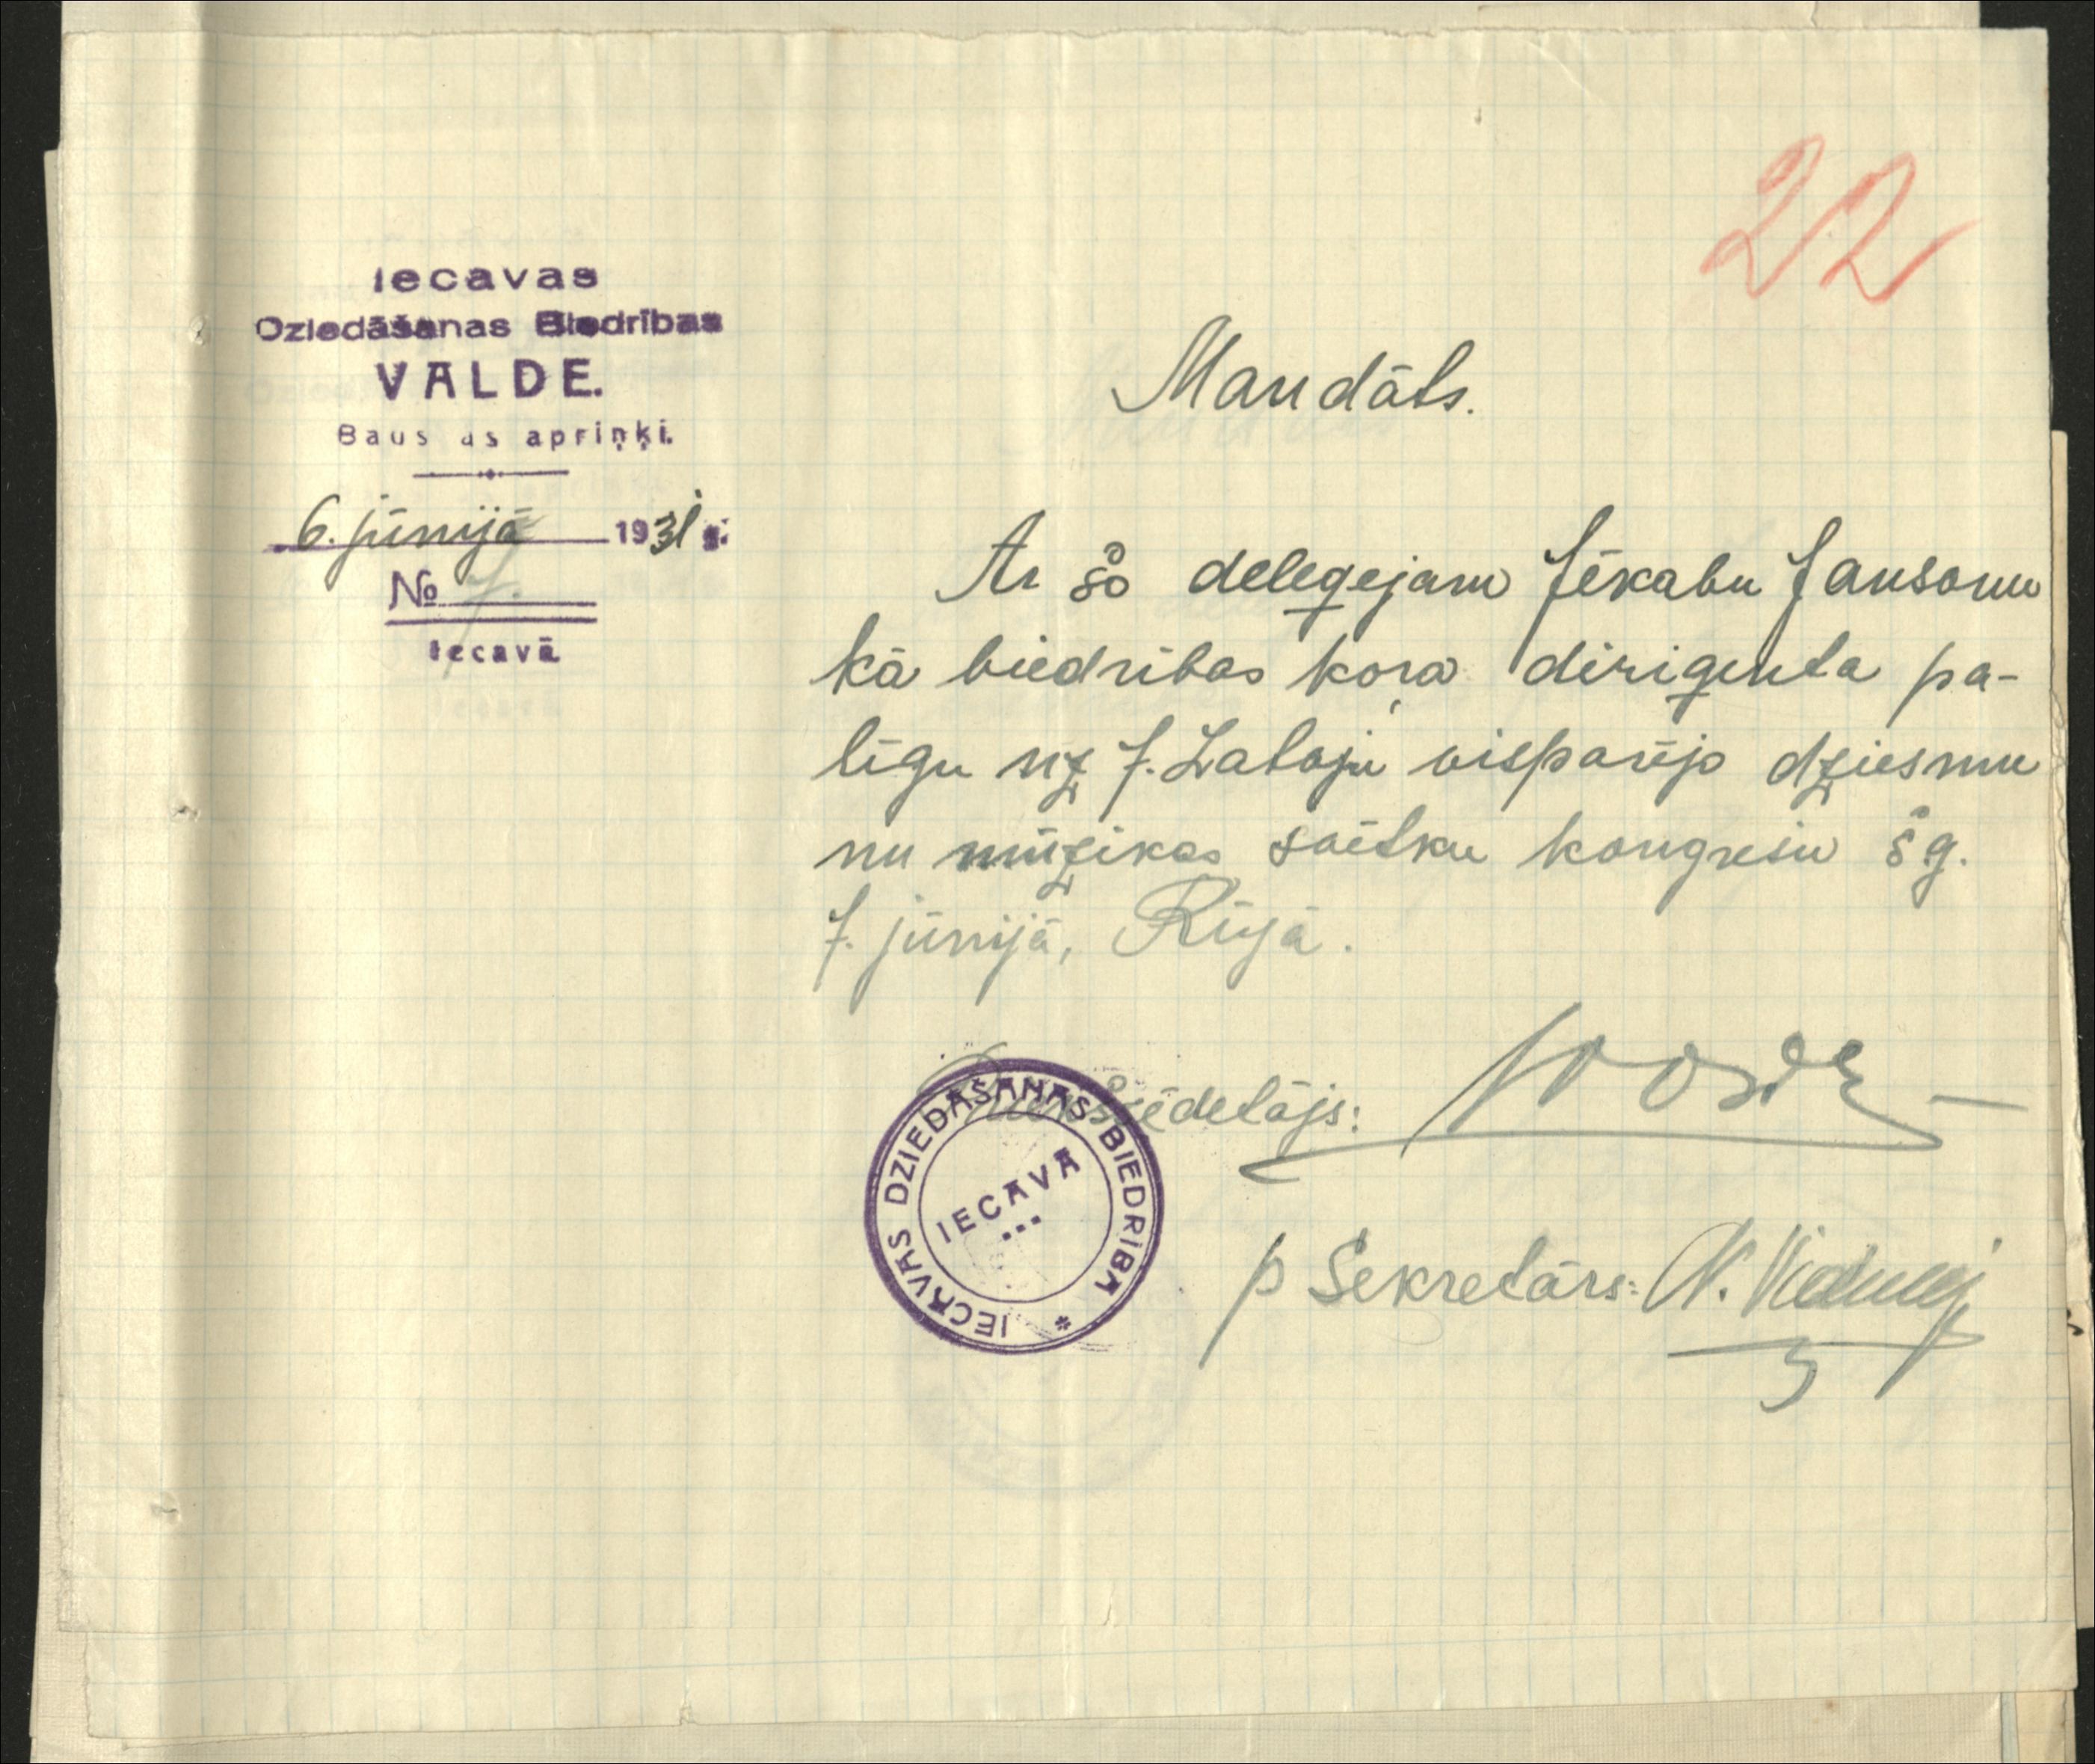 22
Iecavas
Dziedāšanas Biedrības
VALDE.
Baus as apriņķi.
6. jūnijā 1931 g.
No 7.
Iecavā
Mandāts.
Ar šo deleģejam Jēkabu Jansonu
kā biedrības kora diriģenta pa-
līgu uz 7. Latvju vispārējo dziesmu
un mūzikas svētku kongresu š.g.
7. jūnijā, Rīgā.
Priekšsēdetājs:
IECAVAS DZIEDĀŠANAS BIEDRĪBA *
IECAVĀ
p Sekretārs: